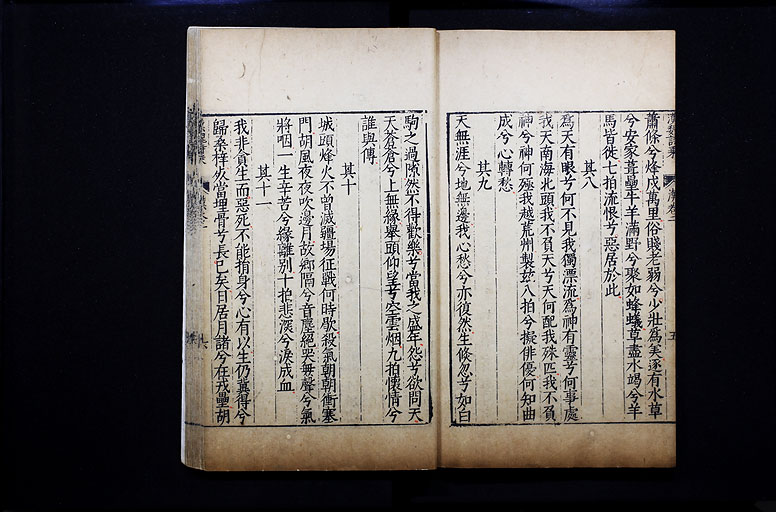 蕭條兮烽戍萬里俗賤老弱兮少壯為美逐有水草
兮安家葺壘牛羊滿野兮聚如蜂蟻草盡水竭兮羊
馬皆徙七拍流恨兮惡居於此
其八
為天有眼兮何不見我獨漂流為神有靈兮何事處
我天南海北頭我不負天兮天何配我殊匹我不負
神兮神何殛我越荒州製茲八拍兮擬俳優何知曲
成兮心轉愁
其九
天無涯兮地無邊我心愁兮亦復然生倏忽兮如白
駒之過隙然不得歡樂兮當我之盛年怨兮欲問天
天蒼蒼兮上無緣舉頭仰望兮空雲烟九拍懷情兮
誰與傳
其十
城頭烽火不曾滅疆場征戰何時歇殺氣朝朝衝塞
門胡風夜夜吹邊月故鄉隔兮音塵絕哭無聲兮氣
將咽一生辛苦兮緣離別十拍悲深兮淚成血
其十一
我非貪生而惡死不能捐身兮心有以生仍冀得兮
歸桑梓死當埋骨兮長已矣日居月諸兮在戎壘胡